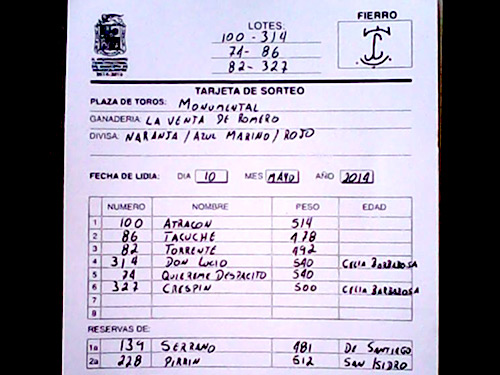 LOTES:
100 - 314
74 - 86
82 - 327
FIERRO
TARJETA DE SORTEO
PLAZA DE TOROS: MONUMENTAL
GANADERIA: LA VENTA DE ROMERO
DIVISA: NARANJA / AZUL MARINO / ROJO
FECHA DE LIDIA: DIA 10 MES MAYO AÑO 2014
NUMERO NOMBRE PESO EDAD
1 100 ATRACON 514
2 86 TACUCHE 478
3 82 TORRENTE 492
4 314 DON LUCIO 540 CELIA BARBABOSA
5 74 QUIEREME DESPACITO 540
6 327 CRESPIN 500 CELIA BARBABOSA
7
8
RESERVAS DE:
1a 139 SERRANO 481 DE SANTIAGO
2a 228 PIRRIN 512 SAN ISIDRO